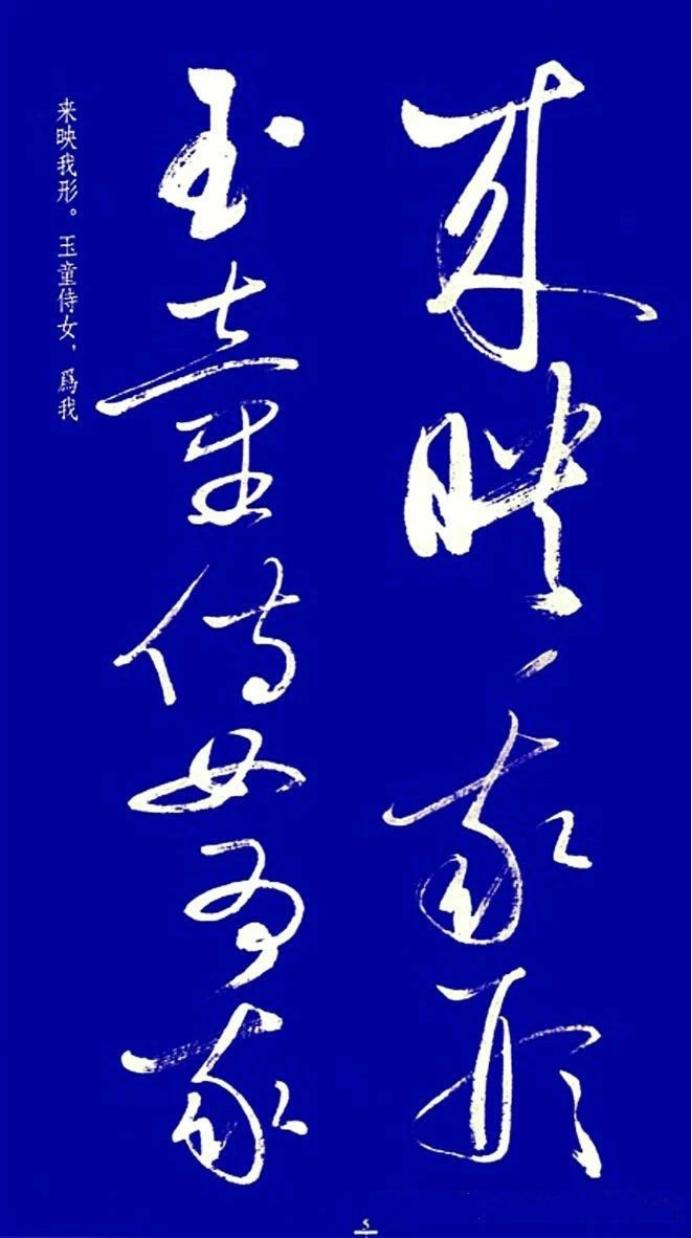 来映我形
玉童侍女为我
来映我形。玉童侍女，爲我
5